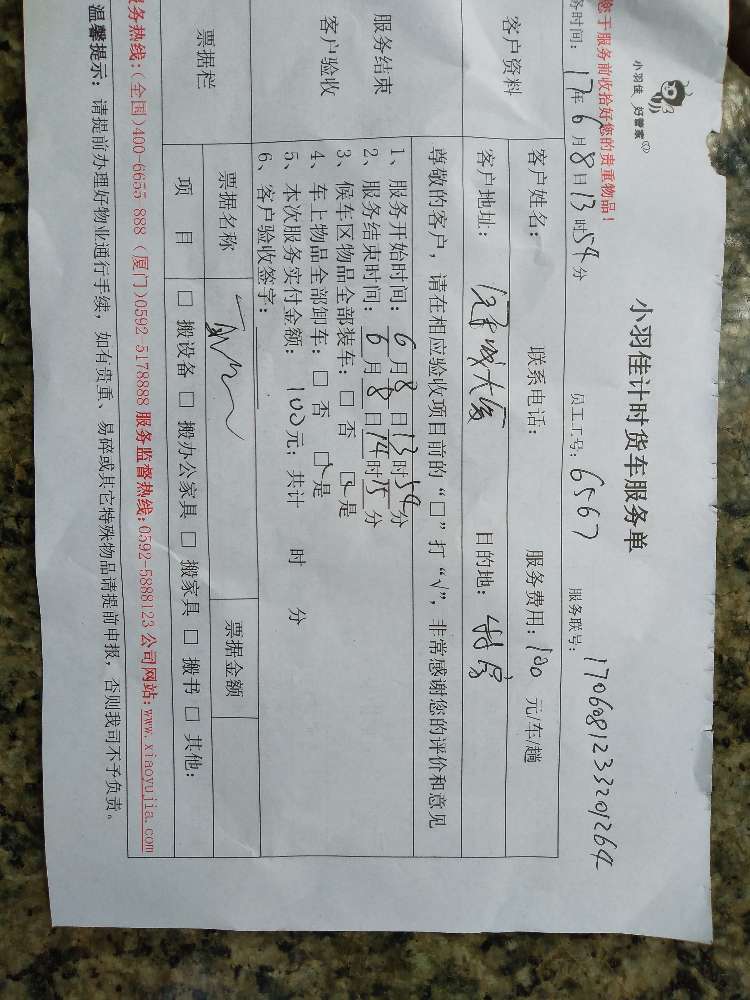 您于服务前收拾好您的贵重物品!
小羽佳 好管家
小羽佳计时货车服务单
务时间: 17年6月8日13时54分 员工工号: 6567 服务联号: 1706081233201264
客户资料
客户姓名: 联系电话: 服务费用: 100 元/车/趟
客户地址: 大厦 目的地:
服务结束
客户验收
尊敬的客户，请在相应验收项目前的“□”打“√”，非常感谢您的评价和意见
1、服务开始时间: 6月8日13时54分
2、服务结束时间: 6月8日14时15分
3、候车区物品全部装车: □ 否 ☑ 是
4、车上物品全部卸车: □ 否 ☑ 是
5、本次服务实付金额: 100元; 共计 时 分
6、客户验收签字:
票据栏
票据名称 票据金额
项 目 □ 搬设备 □ 搬办公家具 □ 搬家具 □ 搬书 □ 其他:
服务热线:(全国)400-6655 888 (厦门)0592-5178888 服务监督热线:0592-5888123 公司网站:www.xiaoyujia.com
温馨提示: 请提前办理好物业通行手续，如有贵重、易碎或其它特殊物品请提前申报，否则我司不予负责。